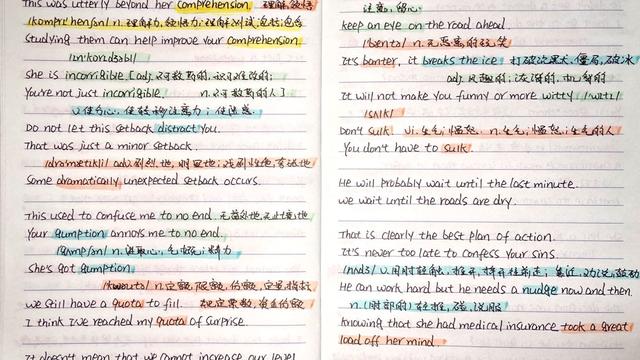 This was utterly beyond her comprehension. 理解,领悟
/kɒmprɪ'henʃən/ n. 理解力,领悟力;理解测试;包括;包含
Studying them can help improve your comprehension.
/ɪn'kɒrɪdʒəbl/
She is incorrigible. [adj. 不可救药的,
You're not just incorrigible. n. 不可救药的人]
v. 使分心,使转移注意力;使迷惑
Do not let this setback distract you.
That was just a minor setback.
/drəmætɪkli/ adv. 剧烈地,明显地;戏剧性地,
Some dramatically unexpected setback occurs.
This used to confuse me to no end. 无止境地
Your gumption annoys me to no end.
/gʌmpʃn/ n. 进取心,气魄;精力
She's got gumption.
/kwəʊtə/ n. 定额,限额,份额,定量,指标
We still have a quota to fill.
I think I've reached my quota of surprise.
It doesn't mean that we cannot increase our level
注意,留心
keep an eye on the road ahead.
/bæntə/ n. 无恶意的玩笑
It's banter, it breaks the ice 打破沉默,僵局,破冰
adj. 风趣的;诙谐的,机智的
It will not make you funny or more witty. /wɪti/
/sʌlk/
Don't sulk. vi. 生气;愠怒. n. 生气;愠怒;生气的人
You don't have to sulk.
He will probably wait until the last minute.
We wait until the roads are dry.
That is clearly the best plan of action.
It's never too late to confess your sins.
/nʌdʒ/ v. 用肘轻触,推开,挤开往前走;靠近,劝说,鼓动
He can work hard but he needs a nudge now and then.
n. (肘部的)轻推,碰,说服
Knowing that she had medical insurance took a great
load off her mind.